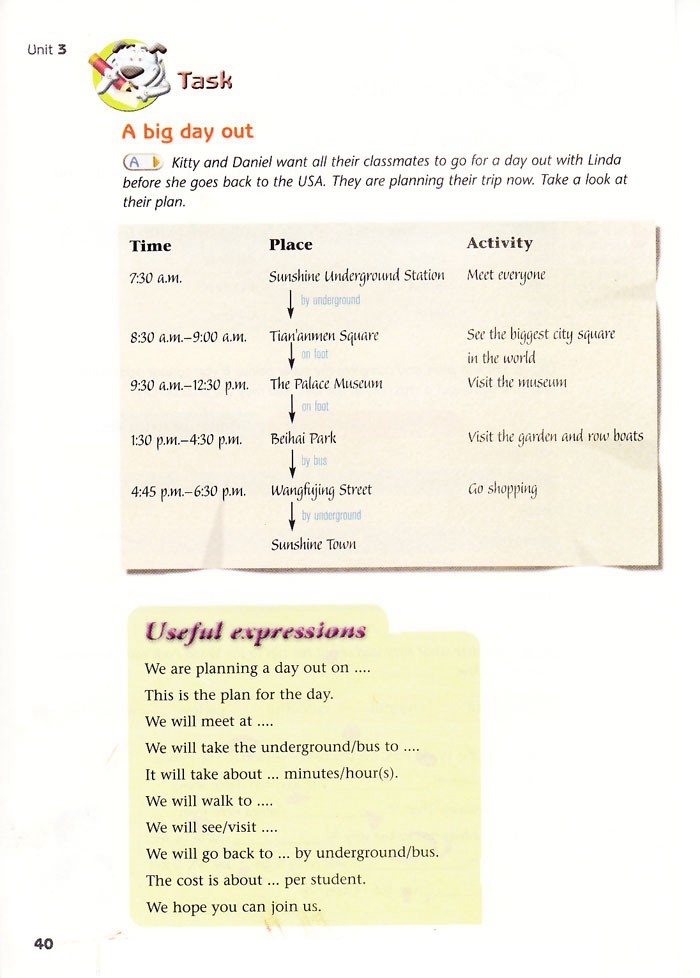 Unit 3
Task
A big day out
A Kitty and Daniel want all their classmates to go for a day out with Linda
before she goes back to the USA. They are planning their trip now. Take a look at
their plan.
Time Place Activity
7:30 a.m. Sunshine Underground Station Meet everyone
by underground
8:30 a.m.–9:00 a.m. Tian'anmen Square See the biggest city square
on foot in the world
9:30 a.m.–12:30 p.m. The Palace Museum Visit the museum
on foot
1:30 p.m.–4:30 p.m. Beihai Park Visit the garden and row boats
by bus
4:45 p.m.–6:30 p.m. Wangfujing Street Go shopping
by underground
Sunshine Town
Useful expressions
We are planning a day out on ....
This is the plan for the day.
We will meet at ....
We will take the underground/bus to ....
It will take about ... minutes/hour(s).
We will walk to ....
We will see/visit ....
We will go back to ... by underground/bus.
The cost is about ... per student.
We hope you can join us.
40